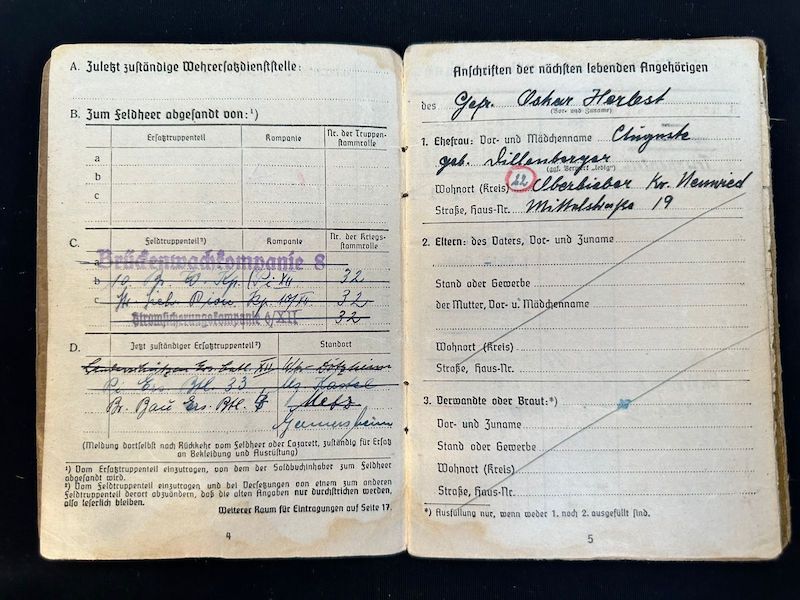 A. Zuletzt zuständige Wehrersatzdienststelle:
B. Zum Feldheer abgesandt von:¹)
Ersatztruppenteil Kompanie Nr. der Truppenstammrolle
a
b
c
C. Feldtruppenteil²) Kompanie Nr. der Kriegsstammrolle
a Brückenwachkompanie 8
b 10. Br. W. Kp. 32
c Kp. 32
Stromsicherungskompanie XII 32
D. Jetzt zuständiger Ersatztruppenteil²) Standort
Ers. Batl. XII
Pi. Ers. Btl. 33 Mz. Kastel
Br. Bau Ers. Btl. Metz
Germersheim
(Meldung dortselbst nach Rückkehr vom Feldheer oder Lazarett, zuständig für Ersatz
an Bekleidung und Ausrüstung)
¹) Vom Ersatztruppenteil einzutragen, von dem der Soldbuchinhaber zum Feldheer
abgesandt wird.
²) Vom Feldtruppenteil einzutragen und bei Versetzungen von einem zum anderen
Feldtruppenteil derart abzuändern, daß die alten Angaben nur durchstrichen werden,
also leserlich bleiben.
Weiterer Raum für Eintragungen auf Seite 17.
4
Anschriften der nächsten lebenden Angehörigen
des Gefr. Oskar Herbst
(Vor- und Zuname)
1. Ehefrau: Vor- und Mädchenname Auguste
geb. Dillenberger
(ggf. Vermerk „ledig“)
Wohnort (Kreis) 22 Oberbieber Kr. Neuwied
Straße, Haus-Nr. Mittelstraße 19
2. Eltern: des Vaters, Vor- und Zuname
Stand oder Gewerbe
der Mutter, Vor- u. Mädchenname
Wohnort (Kreis)
Straße, Haus-Nr.
3. Verwandte oder Braut:*)
Vor- und Zuname
Stand oder Gewerbe
Wohnort (Kreis)
Straße, Haus-Nr.
*) Ausfüllung nur, wenn weder 1. noch 2. ausgefüllt sind.
5